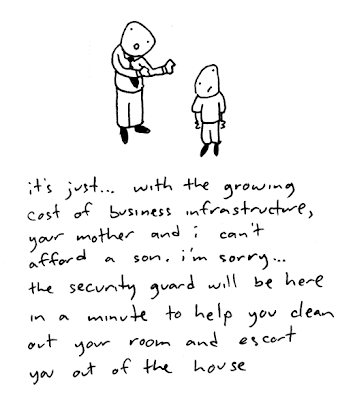 it's just... with the growing
cost of business infrastructure,
your mother and i can't
afford a son. i'm sorry...
the security guard will be here
in a minute to help you clean
out your room and escort
you out of the house